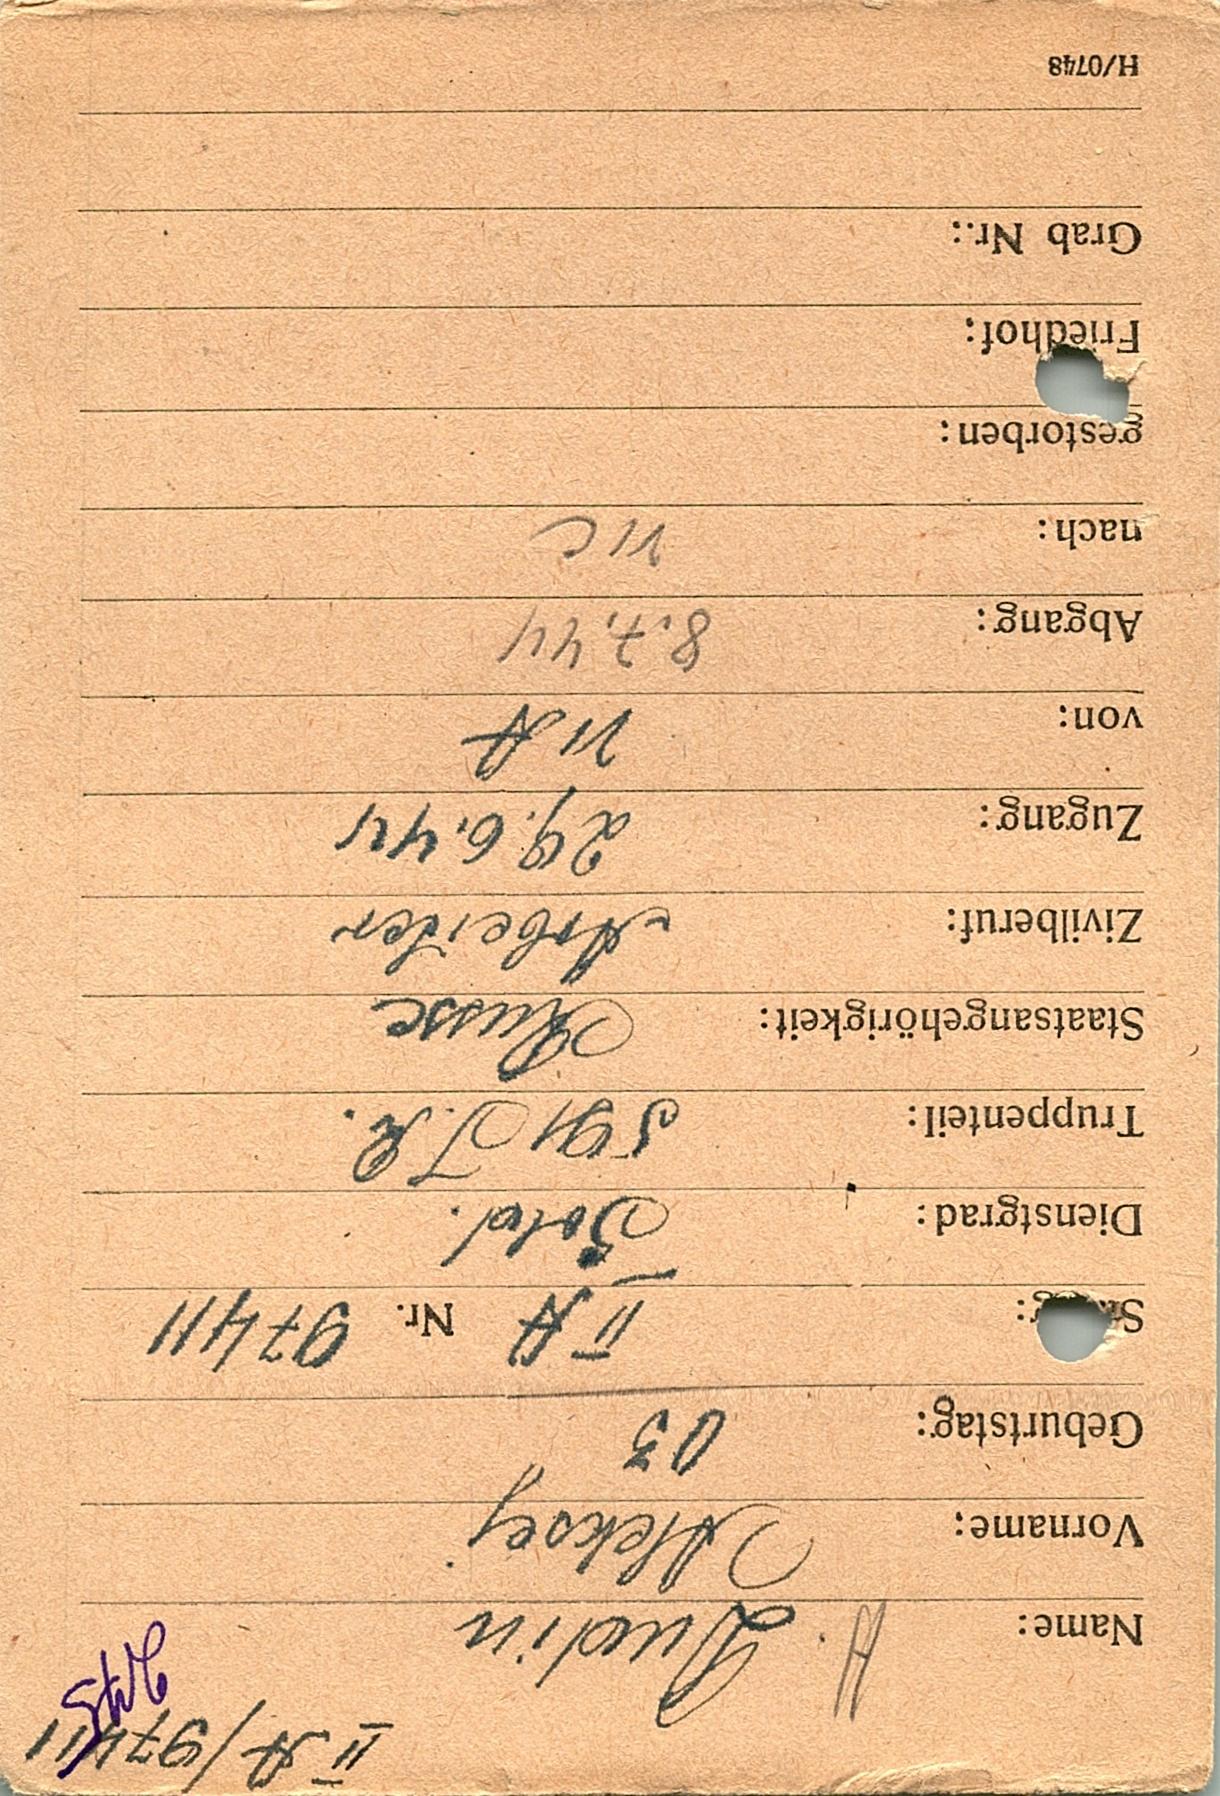 II A/97411
Name: Dudin
Vorname: Aleksej
Geburtstag: 03
II A Nr. 97411
Dienstgrad: Sold.
Truppenteil: 591 J.R.
Staatsangehörigkeit: Russe
Zivilberuf: Arbeiter
Zugang: 29.6.44
von: II A
Abgang: 8.7.44
nach: VI C
gestorben:
Friedhof:
Grab Nr.:
H/0748